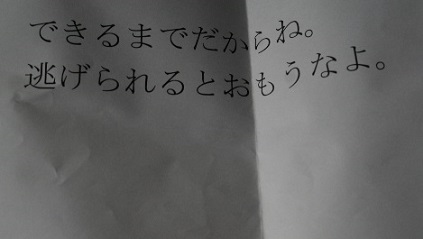 できるまでだからね。
逃げられるとおもうなよ。